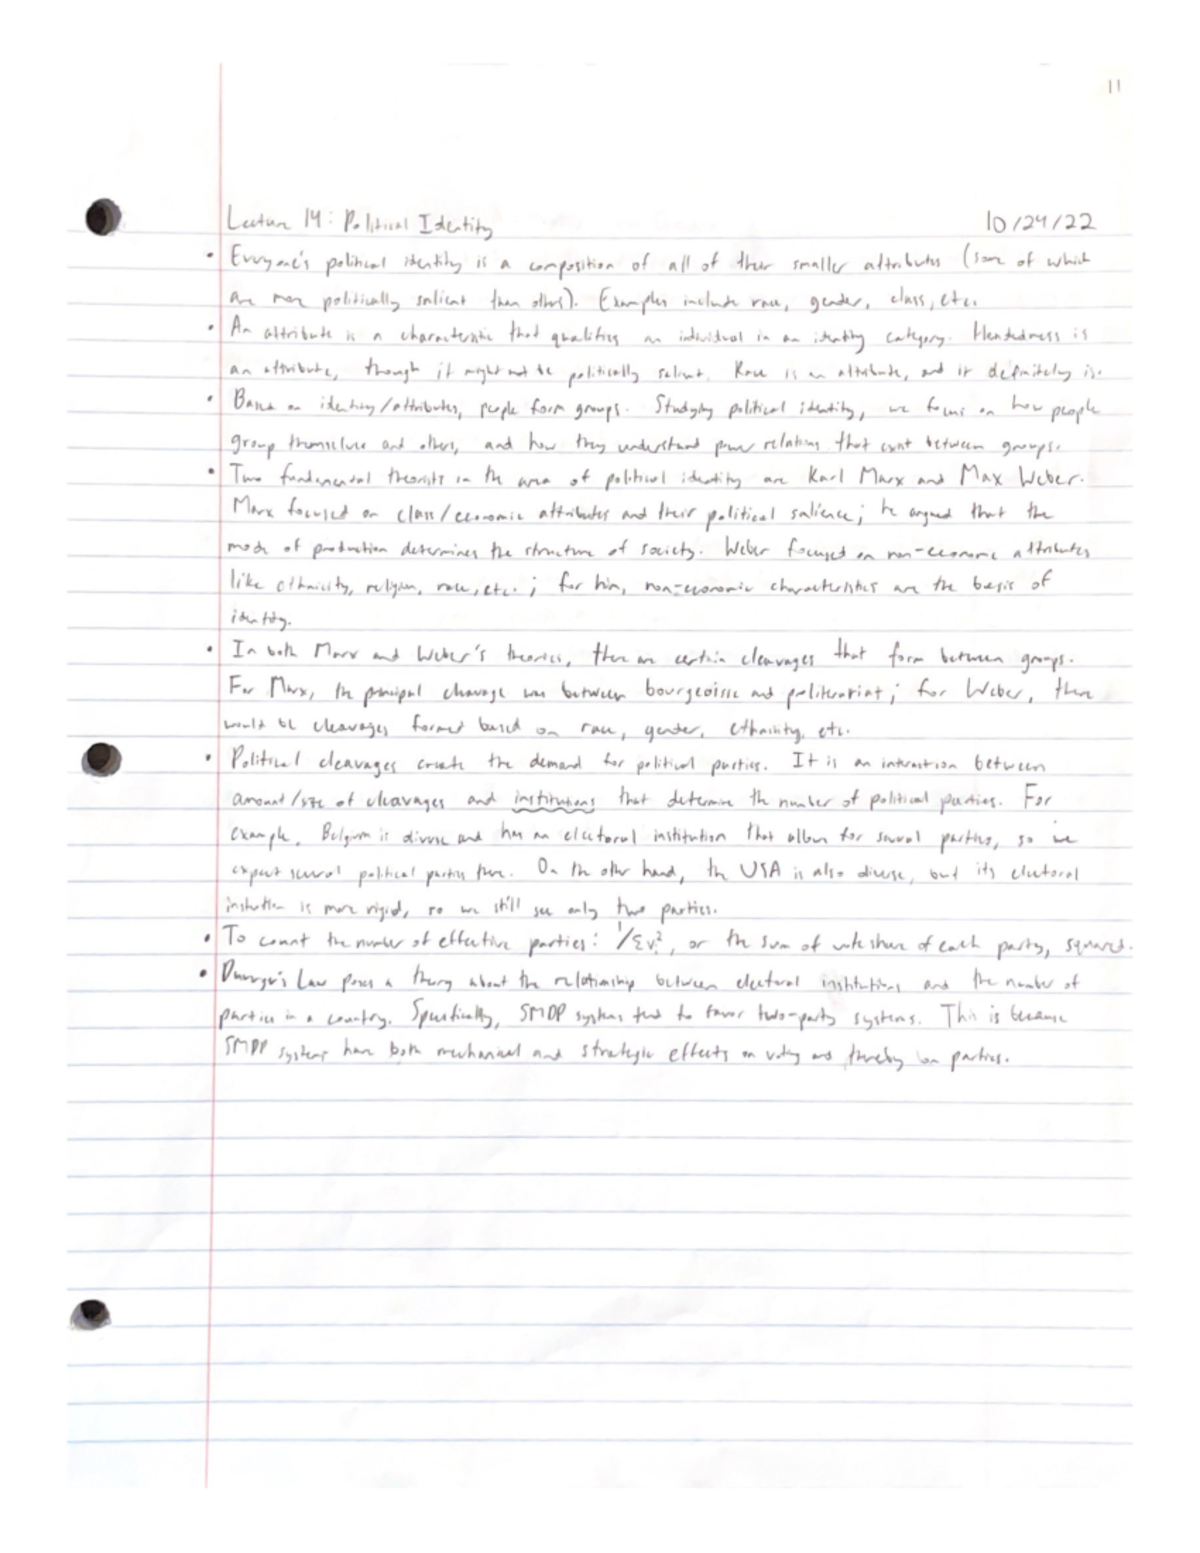 11
Lecture 14: Political Identity 10/24/22
• Everyone's political identity is a composition of all of their smaller attributes (some of which
are more politically salient than others). Examples include race, gender, class, etc.
• An attribute is a characteristic that qualifies an individual in an identity category. Handedness is
an attribute, though it might not be politically salient. Race is an attribute, and it definitely is.
• Based on identity/attributes, people form groups. Studying political identity, we focus on how people
group themselves and others, and how they understand power relations that exist between groups.
• Two fundamental theorists in the area of political identity are Karl Marx and Max Weber.
Marx focused on class/economic attributes and their political salience; he argued that the
mode of production determines the structure of society. Weber focused on non-economic attributes
like ethnicity, religion, race, etc.; for him, non-economic characteristics are the basis of
identity.
• In both Marx and Weber's theories, there are certain cleavages that form between groups.
For Marx, the principal cleavage was between bourgeoisie and proliterariat; for Weber, there
would be cleavages formed based on race, gender, ethnicity, etc.
• Political cleavages create the demand for political parties. It is an interaction between
amount/size of cleavages and institutions that determine the number of political parties. For
example, Belgium is diverse and has an electoral institution that allows for several parties, so we
expect several political parties there. On the other hand, the USA is also diverse, but its electoral
institution is more rigid, so we still see only two parties.
• To count the number of effective parties: 1/Σvᵢ², or the sum of vote share of each party, squared.
• Duverger's Law poses a theory about the relationship between electoral institutions and the number of
parties in a country. Specifically, SMDP systems tend to favor two-party systems. This is because
SMDP systems have both mechanical and strategic effects on voting and thereby on parties.